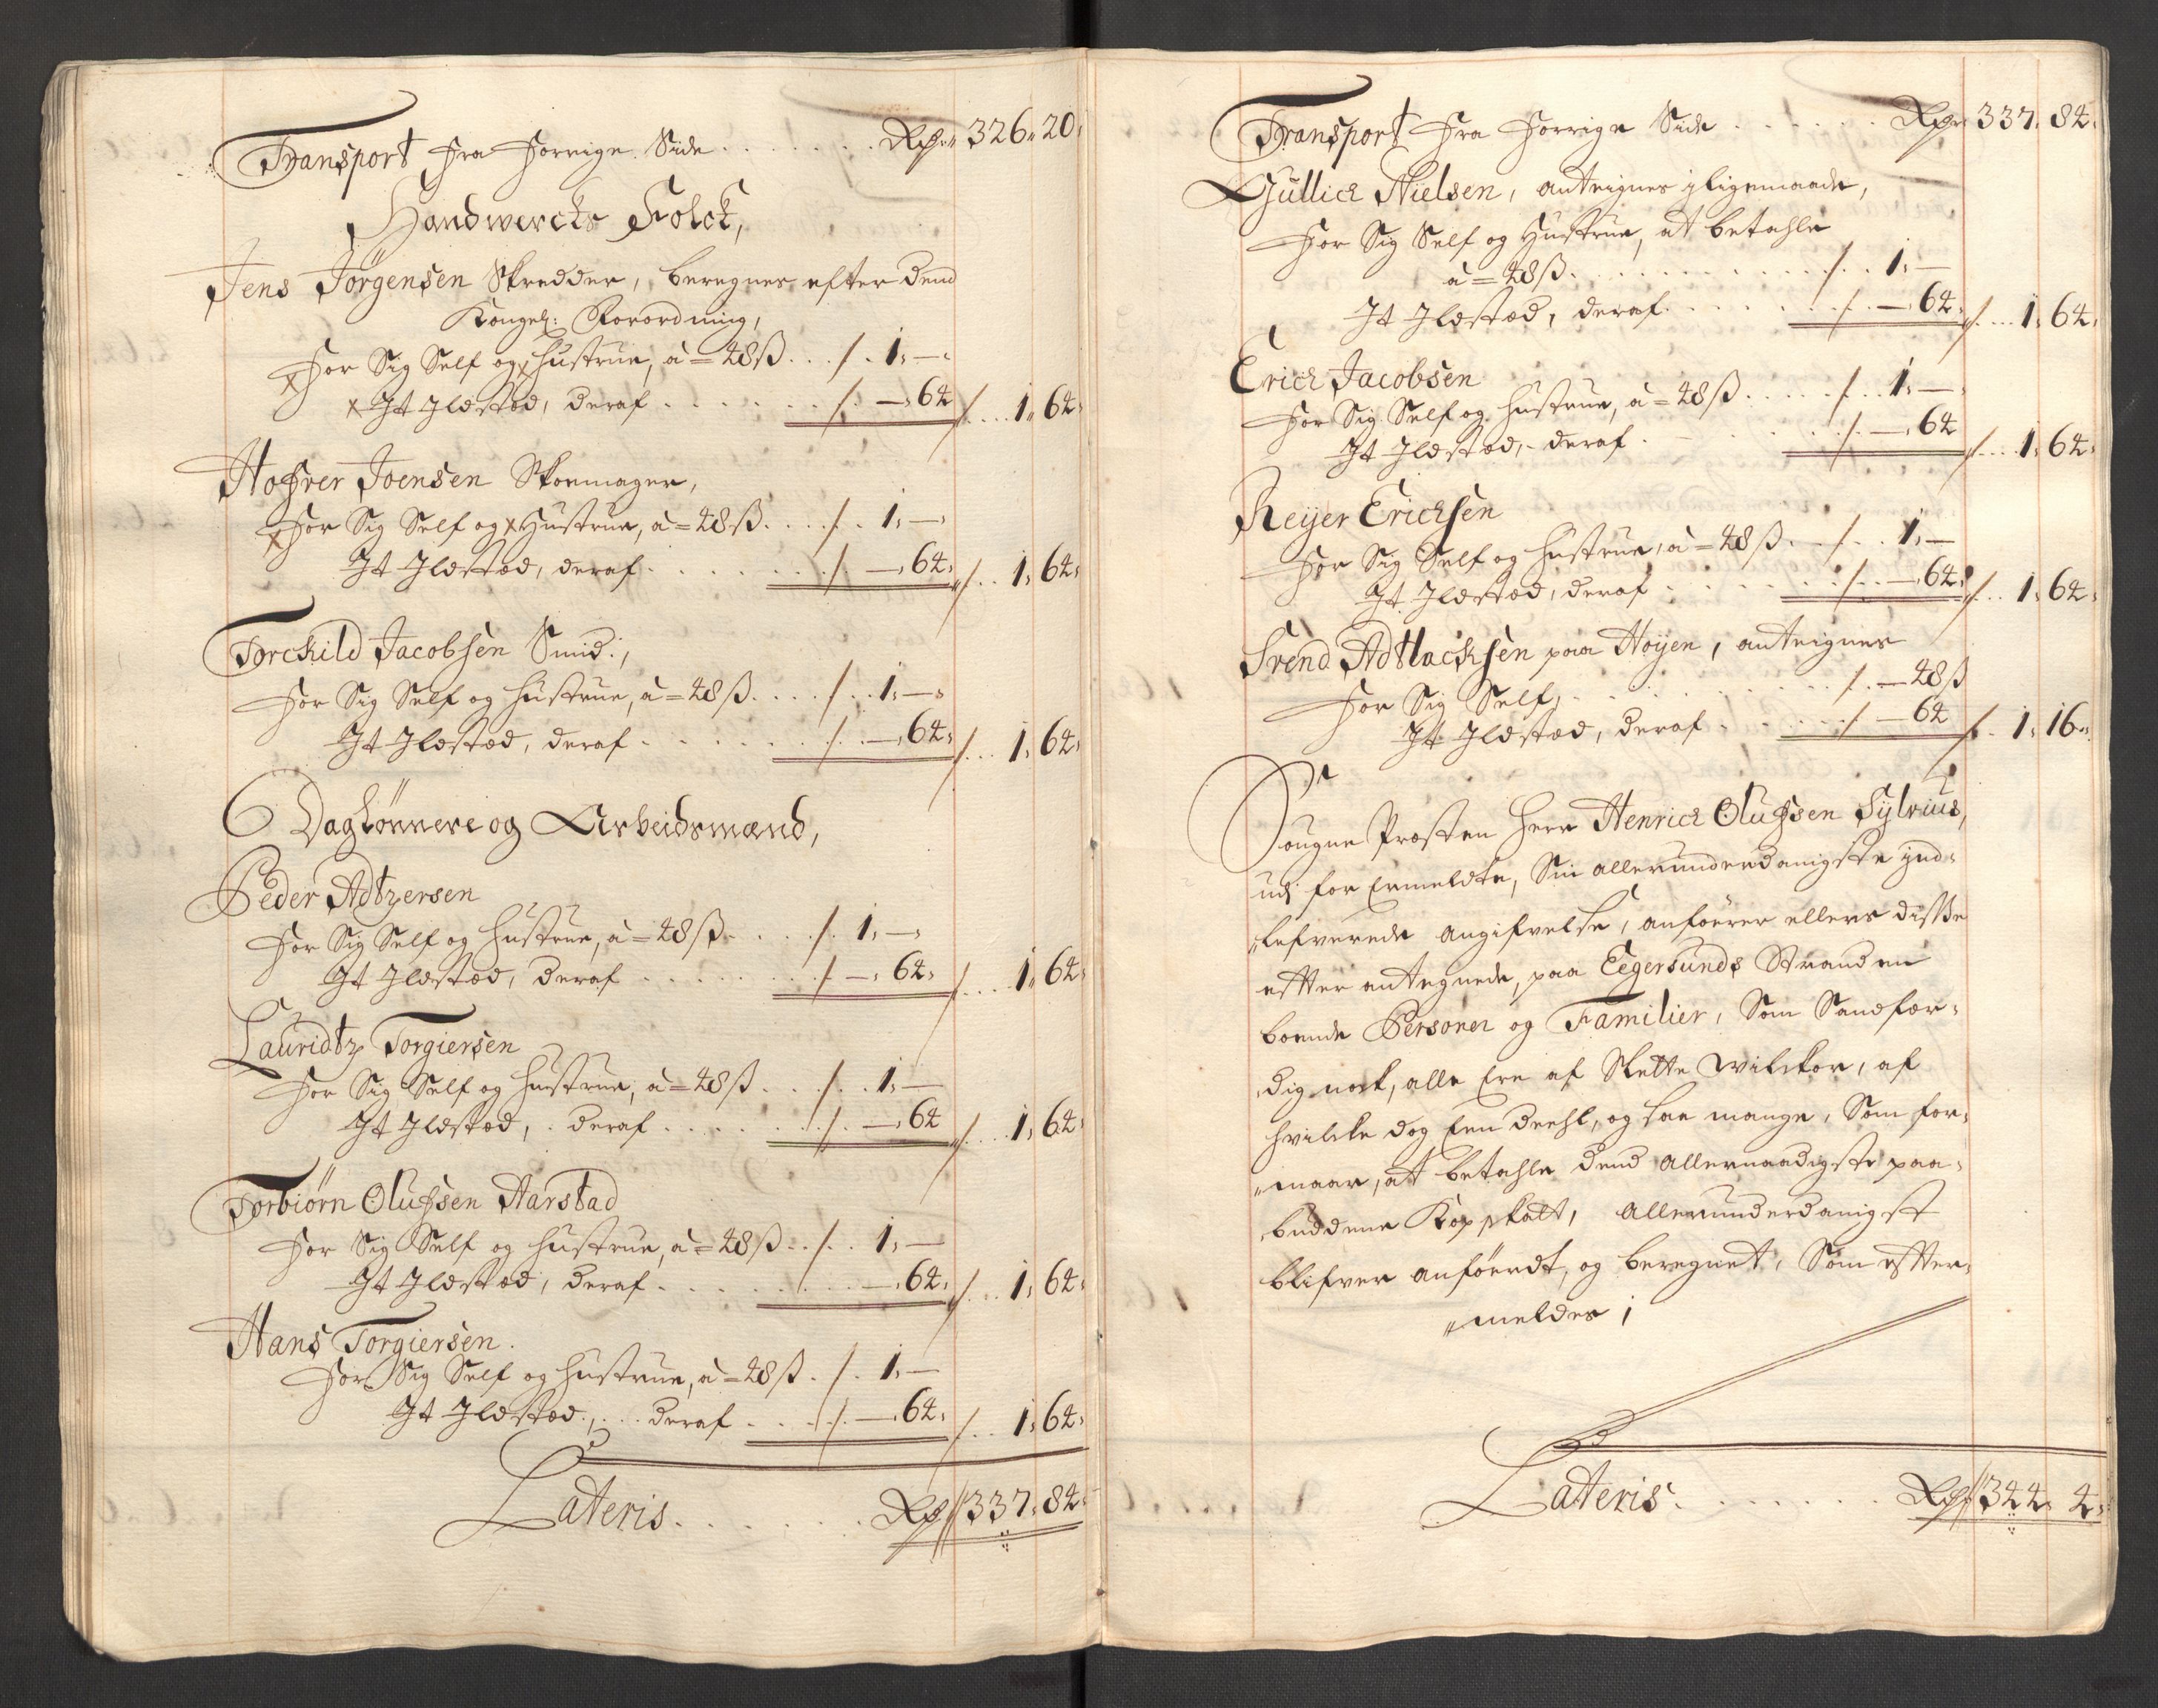 Transport fra forrige Side . . . . . . . Rdr: 326: 20:
Handwercks Folck,
Jens Jörgensen Skredder, beregnes efter dend
Kongel: Forordning,
For Sig Self og hustrue, à = 48 ß . . . / . 1: —
It Ildsted, deraf . . . . . . . / . — 64 / . . . 1: 64:
Hofver Joensen Skoemager,
For Sig Self og Hustrue, à = 48 ß . . . . / . 1: —
It Ildsted, deraf . . . . . . . / — : 64: / . . 1: 64:
Torckild Jacobsen Smid:,
For Sig Self og hustrue, à = 48 ß . . . . / . . 1: —
It Ildsted, deraf . . . . . . . / . — 64: / . . . 1: 64:
Daglönnere og Arbeidsmænd,
Peder Adtzersen
For Sig Self og hustrue, à = 48 ß . . . . / . 1: —
It Ildsted, deraf . . . . . . . / — : 64: / . . . 1: 64:
Lauridtz Torgiersen
For Sig Self og hustrue, à = 48 ß . . . / . . 1: —
It Ildsted, deraf . . . . . . . / . — : 64 / . . . 1: 64:
Torbiörn Olufsen Aarstad
For Sig Self og hustrue, à = 48 ß . . / . . 1: —
It Ildsted, deraf . . . . . . . — 64: / . . . 1: 64:
Hans Torgiersen.
For Sig Self og hustrue, à = 48 ß . / . 1: —
It Ildsted, . . . deraf . . . . / . — 64: / . . . 1: 64:
Lateris . . . . . . . Rdr 337: 84:
Transport fra forrige Side . . . . . . Rdr: 337: 84:
Gullich Nielsen, anteignes j ligemaade,
For Sig Self og Hustrue, at betahle
à = 48 ß . . . . . . . . . . / . . 1: —
It Ildsted, deraf . . . . . . . / . — 64: / . . . 1: 64:
Erich Jacobsen
For Sig Self og hustrue, à = 48 ß . . . . / . . 1: —
It Ildsted, deraf . . . . . . . / . — : 64 / . . . 1: 64:
Reyer Erichsen
For Sig Self og hustrue, à = 48 ß . . / . . 1: —
It Ildsted, deraf . . . . . . . / . . — 64: / . . 1: 64:
Svend Adtlacksen paa Höyen, anteignes
For Sig Self, . . . . . . . . . / . — 48 ß
It Ildsted, deraf . . . . . . . / — 64 / . 1: 16:
Sougne Præsten Herr Henrich Olufsen Sylvius,
udj for Ermeldte, Sin allerunderdanigste ind-
lefverede Angifvelse, anförer ellers disse
efter antegnede, paa Eegersunds Stranden
boende Personer og Familier, Som Sandfær-
dig nock, alle Ere af Slette Wilckor, af
hvilcke dog Een deehl, og saa mange, Som for-
maar, at betahle dend Allernaadigste paa-
buddene Kopskatt, Allerunderdanigst
blifver anfördt, og beregnet, Som efter-
meldes ;
Lateris . . . . . . . Rdr 344: 4: